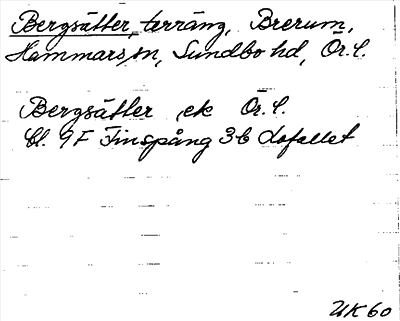 Bergsätter, terräng, Brerum,
Hammars sn, Sundbo hd, Ör. l.
Bergsätter ek Ör. l.
bl. 9F Finspång 3b Lofallet
UK 60